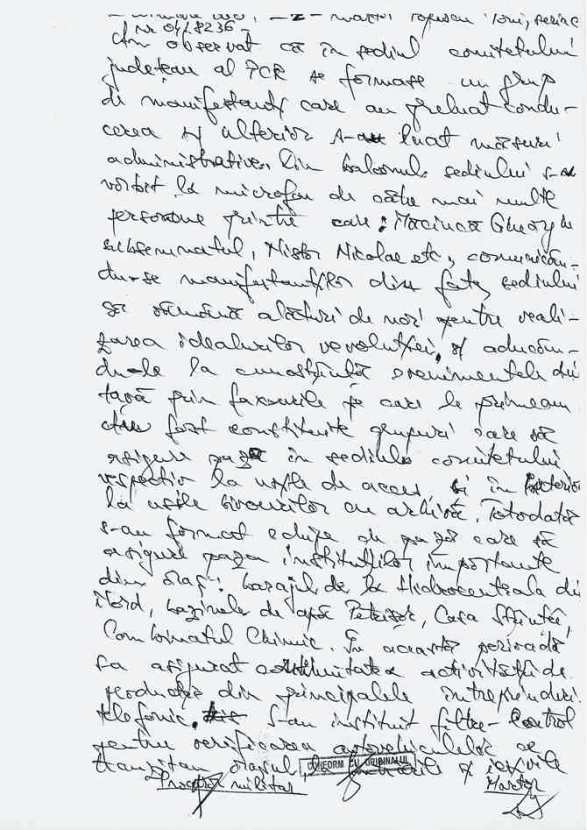 - 2 - martor Popescu Toni, seria
Nr. 0418236 -
Am observat că în sediul comitetului
județean al PCR se formase un grup
de manifestanți care au preluat condu-
cerea și ulterior s-au luat măsuri
administrative. Din balconul sediului s-a
vorbit la microfon de către mai multe
persoane printre care: Macinca Gheorghe
subsemnatul, Nistor Nicolae etc, comunicân-
du-se manifestanților din fața sediului
să rămână alături de noi pentru reali-
zarea idealurilor revoluției, și aducân-
du-le la cunoștință evenimentele din
țară prin faxurile pe care le primeam.
Au fost constituite grupuri care să
asigure paza în sediul comitetului
respectiv la ușile de acces și în interior
la ușile birourilor cu arhivă. Totodată
s-au format echipe de pază care să
asigure paza instituțiilor importante
din oraș: barajul de la Hidrocentrala din
Nord, bazinele de apă Petrișor, Casa Sfântă,
Combinatul Chimic. În această perioadă
s-a asigurat continuitatea activității de
producție din principalele întreprinderi
telefonic. s-au instituit filtre-control
pentru verificarea autovehiculelor ce
tranzitau orașul, la intrările și ieșirile
CONFORM CU ORIGINALUL
Procuror militar Martor